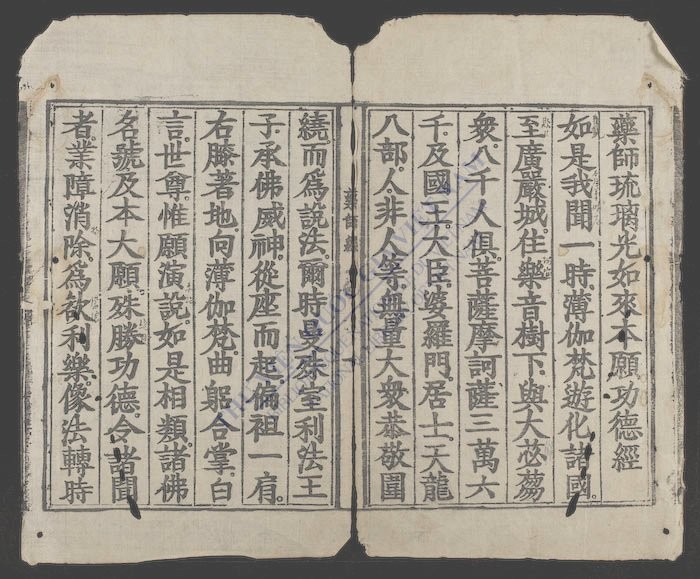 藥師琉璃光如來本願功德經
如是我聞一時薄伽梵遊化諸國
至廣嚴城住樂音樹下與大苾蒭
衆八千人俱菩薩摩訶薩三萬六
千及國王大臣婆羅門居士天龍
八部人非人等無量大衆恭敬圍
藥師經
繞而爲說法爾時曼殊室利法王
子承佛威神從座而起偏袒一肩
右膝著地向薄伽梵曲躬合掌白
言世尊惟願演說如是相類諸佛
名號及本大願殊勝功德令諸聞
者業障消除爲欲利樂像法轉時